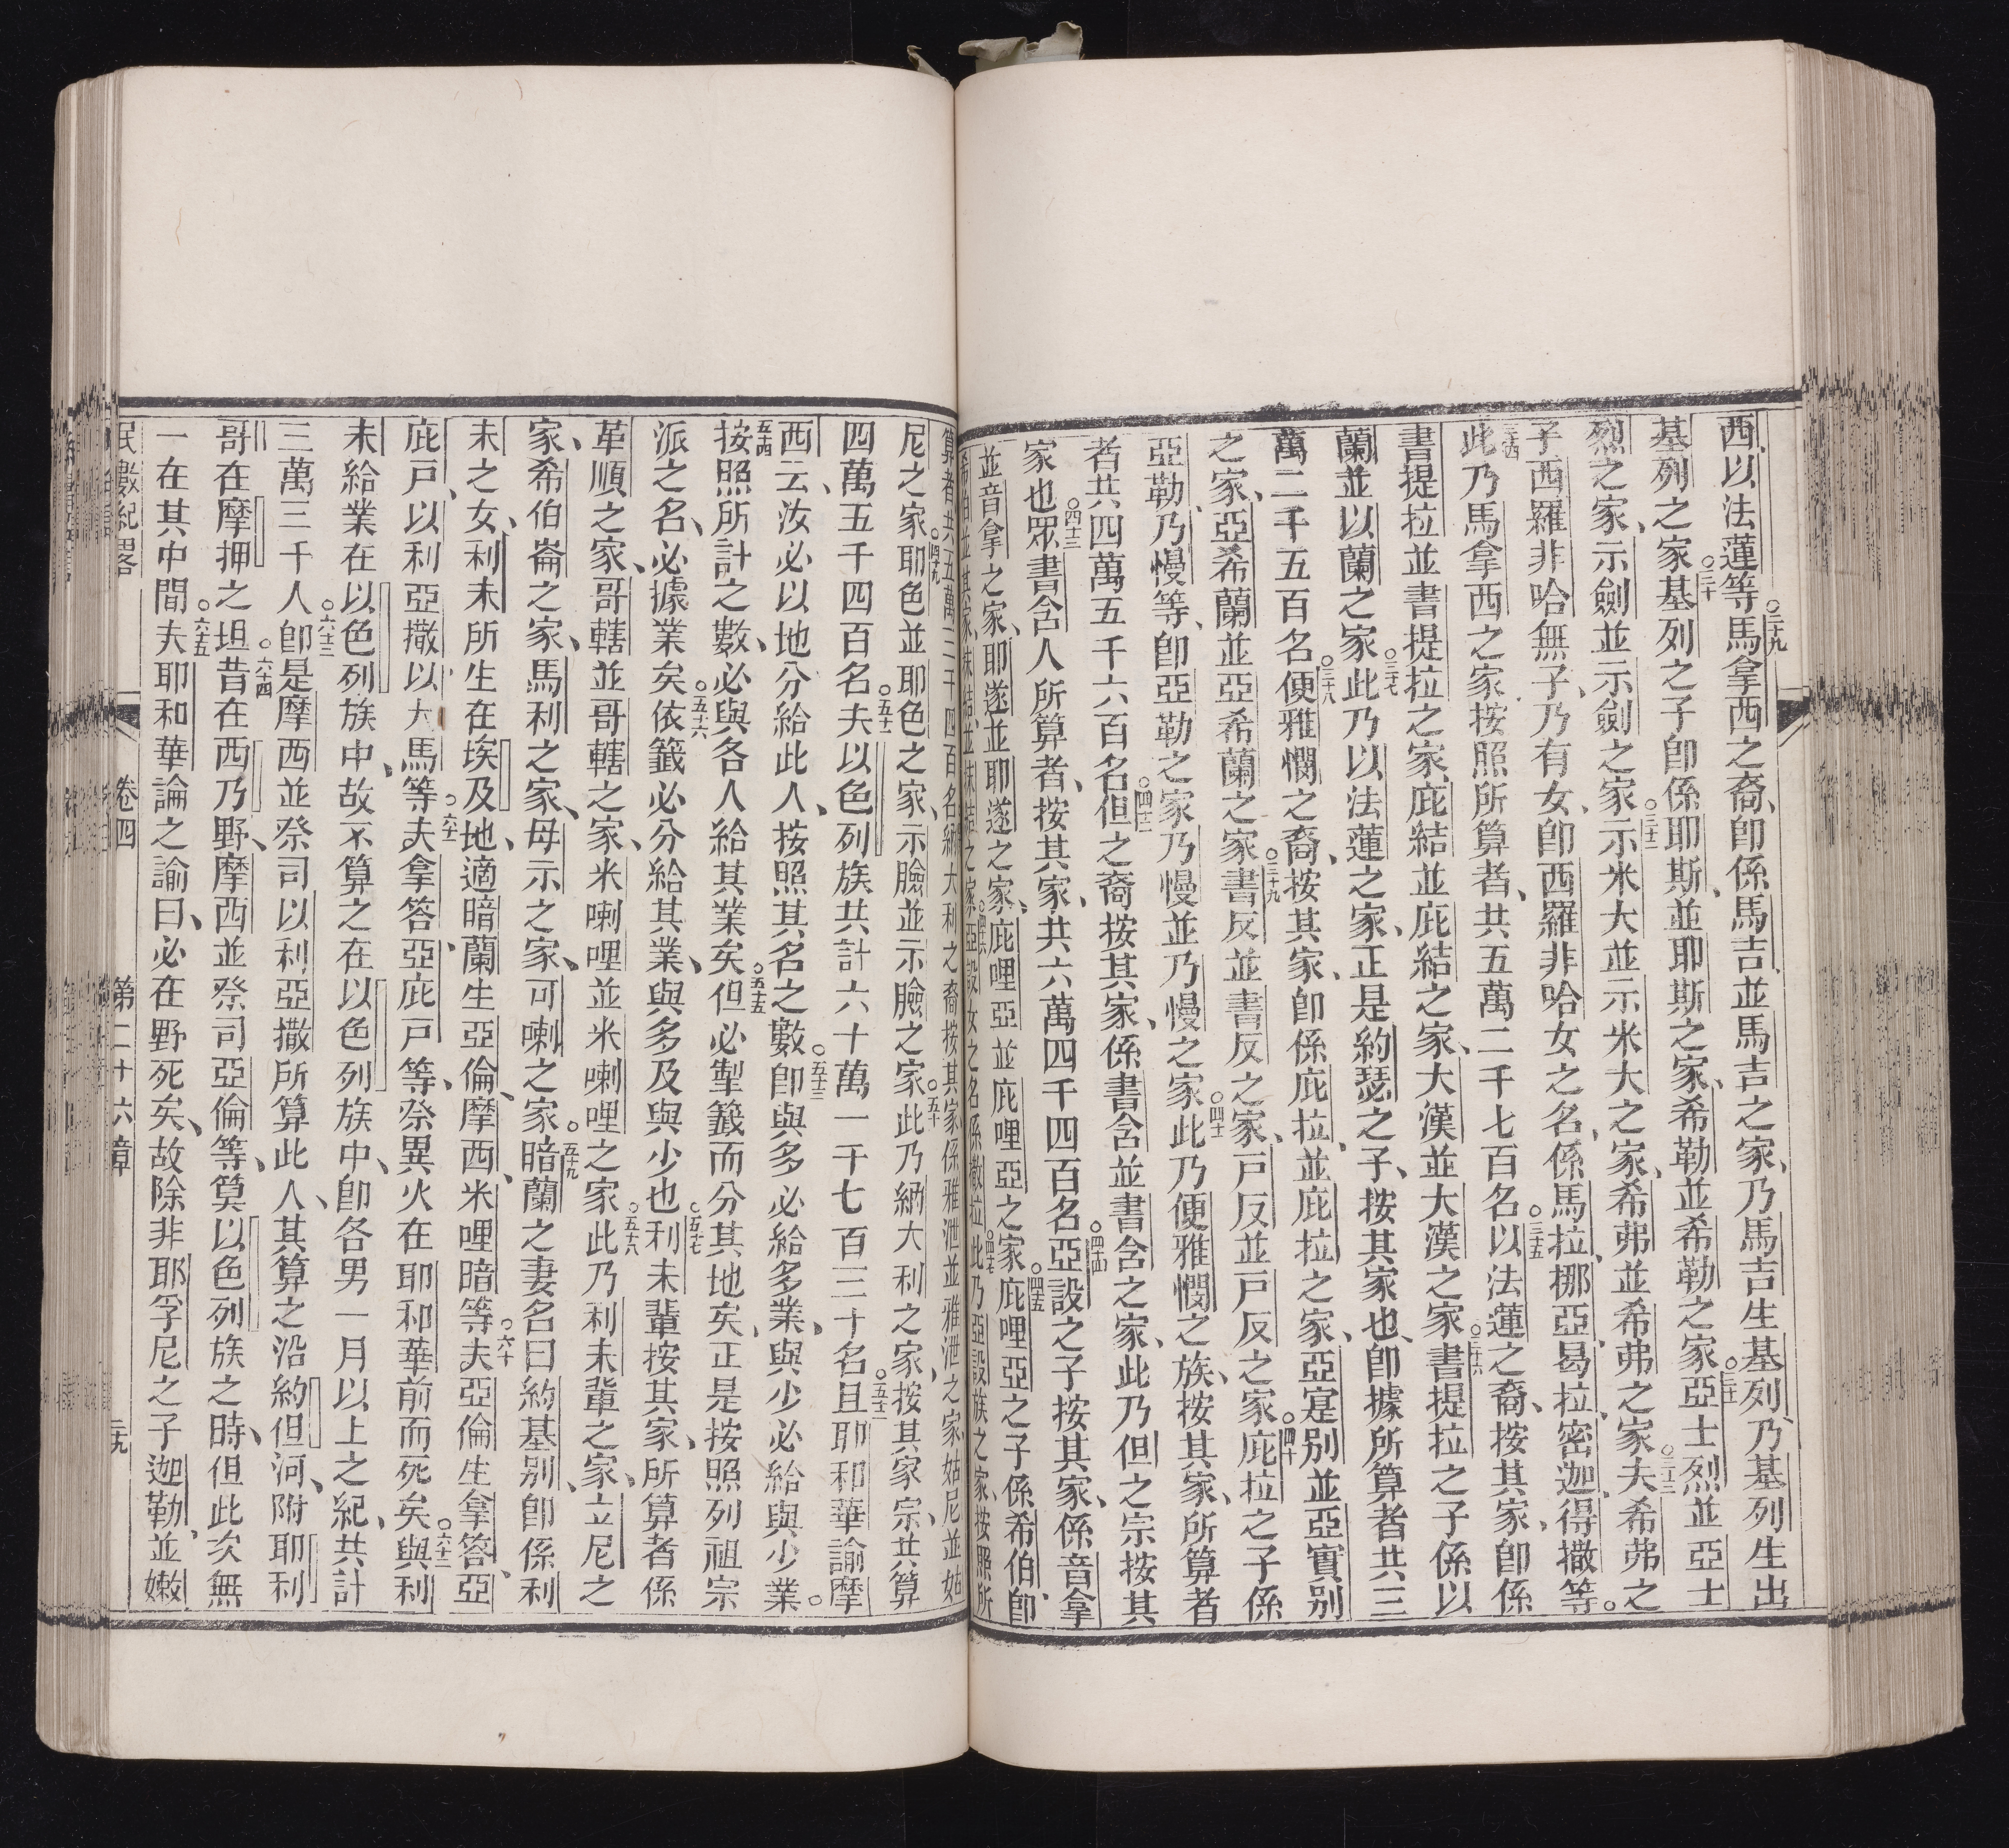 西以法蓮等○二十九馬拿西之裔、卽係馬吉並馬吉之家、乃馬吉生基列、乃基列生出
基列之家○三十基列之子卽係耶斯、並耶斯之家、希勒並希勒之家○三十一亞士烈並亞士
烈之家、示劍並示劍之家○三十二示米大並示米大之家、希弗並希弗之家○三十三夫希弗之
子西羅非哈無子、乃有女、卽西羅非哈女之名、係馬拉、挪亞、曷拉、密迦、得撒等。
○三十四此乃馬拿西之家按照所算者、共五萬二千七百名○三十五以法蓮之裔、按其家、卽係
書提拉並書提拉之家、庇結並庇結之家、大漢並大漢之家○三十六書提拉之子係以
蘭並以蘭之家○三十七此乃以法蓮之家、正是約瑟之子、按其家也、卽據所算者共三
萬二千五百名○三十八便雅憫之裔、按其家、卽係庇拉、並庇拉之家、亞寔別並亞實別
之家、亞希蘭並亞希蘭之家○三十九書反並書反之家、戸反並戸反之家○四十庇拉之子係
亞勒、乃慢等、卽亞勒之家乃慢並乃慢之家○四十一此乃便雅憫之族、按其家、所算者
者共四萬五千六百名○四十二但之裔按其家、係書含並書含之家、此乃但之宗按其
家也○四十三眾書含人所算者、按其家、共六萬四千四百名○四十四亞設之子按其家、係音拿
並音拿之家、耶遂並耶遂之家、庇哩亞並庇哩亞之家○四十五庇哩亞之子係希伯、卽
希伯並其家、抹結並抹結之家○四十六亞設女之名係撒拉○四十七此乃亞設族之家、按照所
算者共五萬三千四百名○四十八納大利之裔按其家係雅泄並雅泄之家姑尼並姑
尼之家○四十九耶色並耶色之家、示臉並示臉之家○五十此乃納大利之家、按其家宗、共算
四萬五千四百名○五十一夫以色列族共計六十萬一千七百三十名○五十二且耶和華諭摩
西云、汝必以地分給此人、按照其名之數○五十三卽與多必給多業、與少必給與少業。
○五十四按照所計之數、必與各人給其業矣○五十五但必掣籤而分其地矣、正是按照列祖宗
派之名、必據業矣○五十六依籤必分給其業、與多及與少也○五十七利未輩按其家、所算者係
革順之家、哥轄並哥轄之家、米喇哩並米喇哩之家○五十八此乃利未輩之家、立尼之
家、希伯崙之家、馬利之家、母示之家、可喇之家○五十九暗蘭之妻名曰約基別、卽係利
未之女、利未所生在埃及地、適暗蘭生亞倫、摩西、米哩暗等○六十夫亞倫生拿答、亞
庇戸、以利亞撒、以大馬等○六十一夫拿答、亞庇戸等、祭異火在耶和華前而死矣○六十二與利
未給業在以色列族中、故不算之在以色列族中、卽各男一月以上之紀、共計
三萬三千人○六十三卽是摩西並祭司以利亞撒所算此人、其算之沿約但河、附耶利
哥在摩押之坦○六十四昔在西乃野、摩西並祭司亞倫等、算以色列族之時、但此次無
一在其中間○六十五夫耶和華論之諭曰、必在野死矣、故除非耶孚尼之子迦勒、並嫩
民數紀畧　卷四　第二十六章　三九